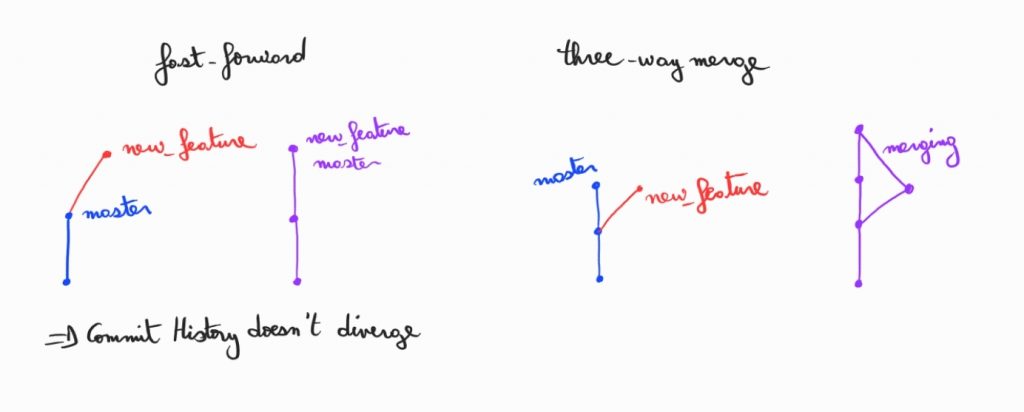 fast-forward
new_feature
master
new_feature
master
=> Commit History doesn't diverge
three-way merge
master
new_feature
merging